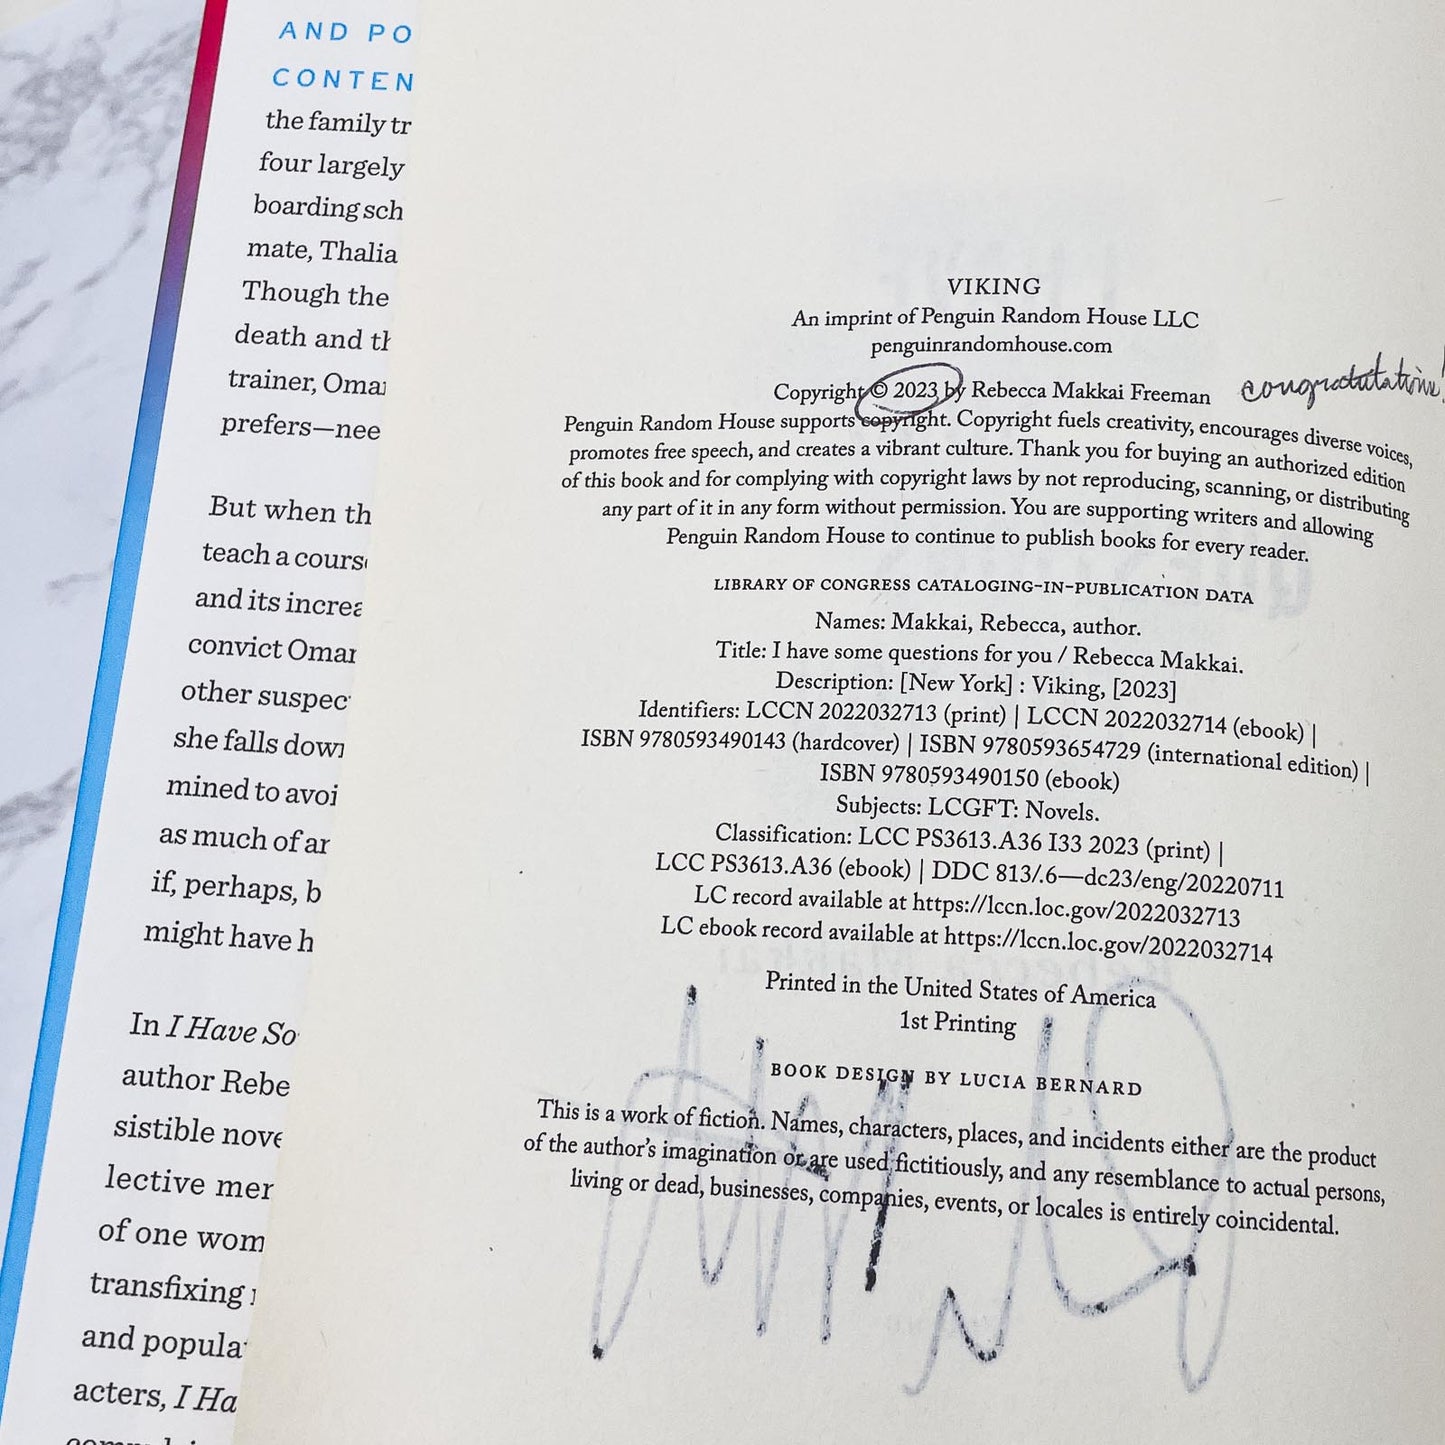 AND PO
CONTEN
the family tr
four largely
boarding sch
mate, Thalia
Though the
death and th
trainer, Omar
prefers—nee
But when th
teach a cours
and its increa
convict Omar
other suspec
she falls down
mined to avoi
as much of ar
if, perhaps, b
might have h
In I Have So
author Rebe
sistible nove
lective mer
of one wom
transfixing
and popula
acters, I Ha
VIKING
An imprint of Penguin Random House LLC
penguinrandomhouse.com
Copyright © 2023 by Rebecca Makkai Freeman
congratulations!
Penguin Random House supports copyright. Copyright fuels creativity, encourages diverse voices,
promotes free speech, and creates a vibrant culture. Thank you for buying an authorized edition
of this book and for complying with copyright laws by not reproducing, scanning, or distributing
any part of it in any form without permission. You are supporting writers and allowing
Penguin Random House to continue to publish books for every reader.
LIBRARY OF CONGRESS CATALOGING-IN-PUBLICATION DATA
Names: Makkai, Rebecca, author.
Title: I have some questions for you / Rebecca Makkai.
Description: [New York] : Viking, [2023]
Identifiers: LCCN 2022032713 (print) | LCCN 2022032714 (ebook) |
ISBN 9780593490143 (hardcover) | ISBN 9780593654729 (international edition) |
ISBN 9780593490150 (ebook)
Subjects: LCGFT: Novels.
Classification: LCC PS3613.A36 I33 2023 (print) |
LCC PS3613.A36 (ebook) | DDC 813/.6—dc23/eng/20220711
LC record available at https://lccn.loc.gov/2022032713
LC ebook record available at https://lccn.loc.gov/2022032714
Printed in the United States of America
1st Printing
BOOK DESIGN BY LUCIA BERNARD
This is a work of fiction. Names, characters, places, and incidents either are the product
of the author's imagination or are used fictitiously, and any resemblance to actual persons,
living or dead, businesses, companies, events, or locales is entirely coincidental.